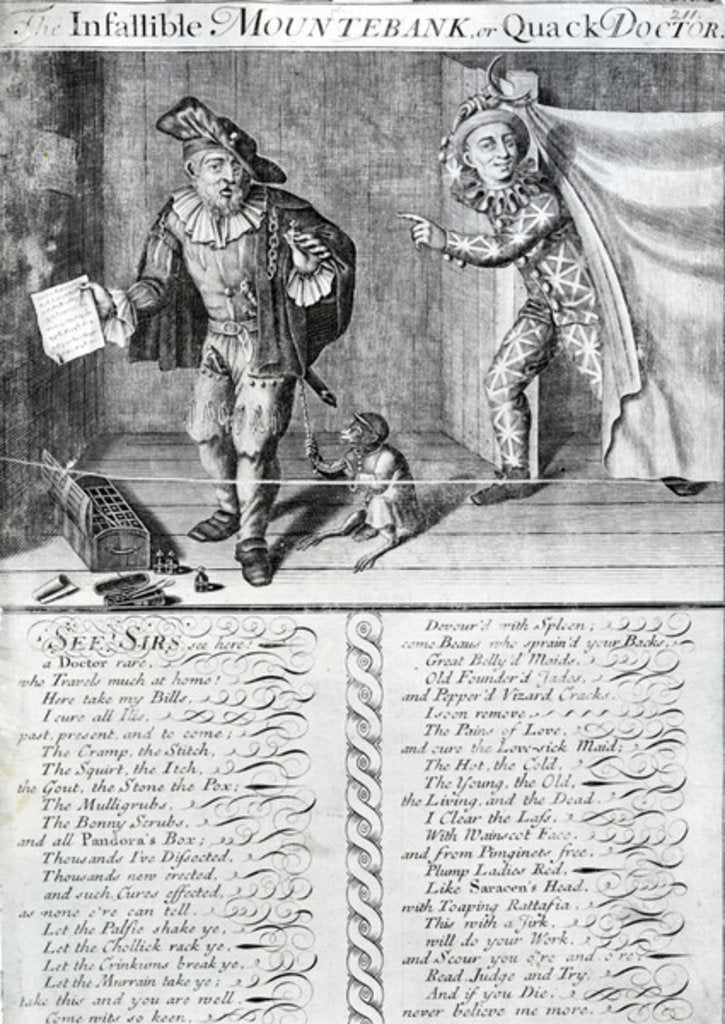 The Infallible MOUNTEBANK, or Quack DOCTOR.
211.
SEE SIRS see here!
a Doctor rare,
who Travels much at home!
Here take my Bills,
I cure all Ills,
past, present, and to come;
The Cramp, the Stitch,
The Squirt, the Itch,
the Gout, the Stone the Pox;
The Mulligrubs,
The Bonny Scrubs,
and all Pandora's Box;
Thousands I've Dissected,
Thousands new erected,
and such Cures effected,
as none e're can tell.
Let the Palsie shake ye,
Let the Chollick rack ye,
Let the Crinkums break ye,
Let the Murrain take ye;
take this and you are well.
Come wits so keen,
Devour'd with Spleen;
come Beaus who sprain'd your Backs,
Great Belly'd Maids,
Old Founder'd Jades,
and Pepper'd Vizard Cracks.
I soon remove
The Pains of Love,
and cure the Love-sick Maid;
The Hot, the Cold,
The Young, the Old,
the Living, and the Dead.
I Clear the Lass,
With Wainscot Face,
and from Pimginets free,
Plump Ladies Red,
Like Saracen's Head,
with Toaping Rattafia.
This with a Jirk,
will do your Work,
and Scour you o're and o're
Read, Judge and Try,
And if you Die,
never believe me more.